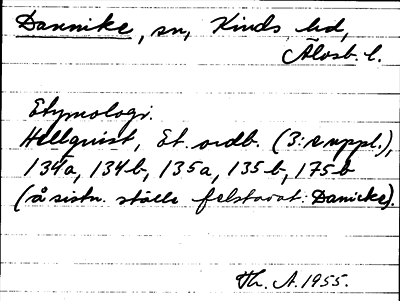 Dannike, sn, Kinds hd,
Älvsb. l.
Etymologi.
Hellquist, Et. ordb. (3:e uppl.),
134a, 134b, 135a, 135b, 175b
(å sistn. ställe felstavat: Danicke).
Th. A. 1955.